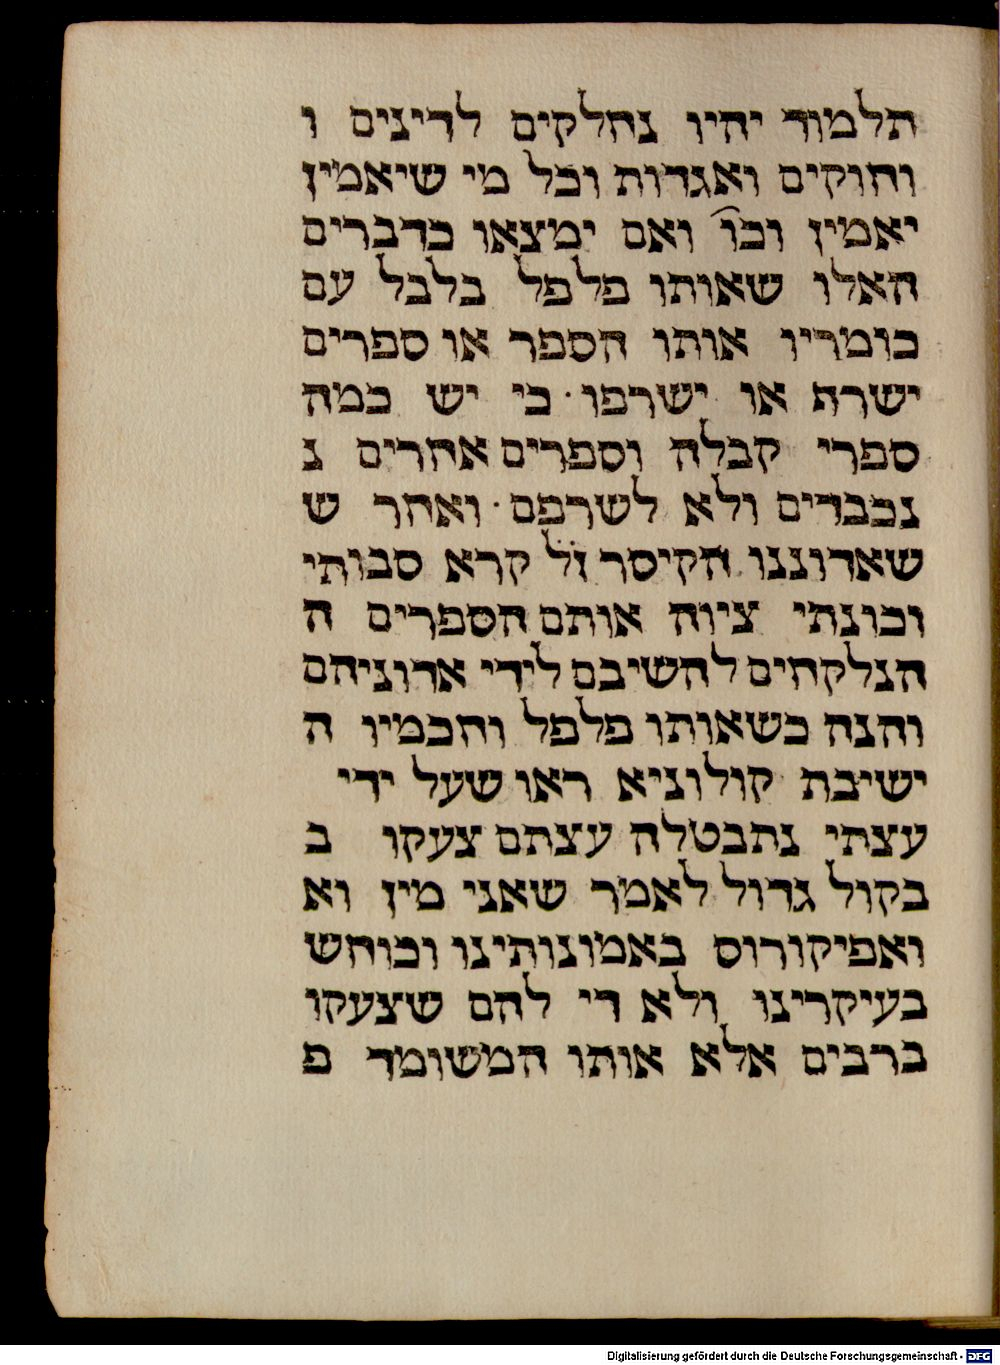 תלמוד יהיו נחלקים לדינים ו
וחוקים ואגדות וכל מי שיאמין
יאמין וכו ואם ימצאו כדברים
האלו שאותו פלפל בלבל עם
כומריו אותו הספר או ספרים
ישרת או ישרפו · כי יש כמה
ספרי קבלה וספרים אחרים נ
נכבדים ולא לשרפם · ואחר ש
שאדוננו הקיסר זל קרא סבותי
וכונתי ציוה אותם הספרים ה
הנלקחים להשיבם לידי אדוניהם
והנה כשאותו פלפל וחכמיו ה
ישיבת קולוניא ראו שעל ידי
עצתי נתבטלה עצתם צעקו ב
בקול גדול לאמר שאני מין וא
ואפיקורוס באמונותינו וכוחש
בעיקרינו ולא די להם שצעקו
ברבים אלא אותו המשומד פ
Digitalisierung gefördert durch die Deutsche Forschungsgemeinschaft - DFG